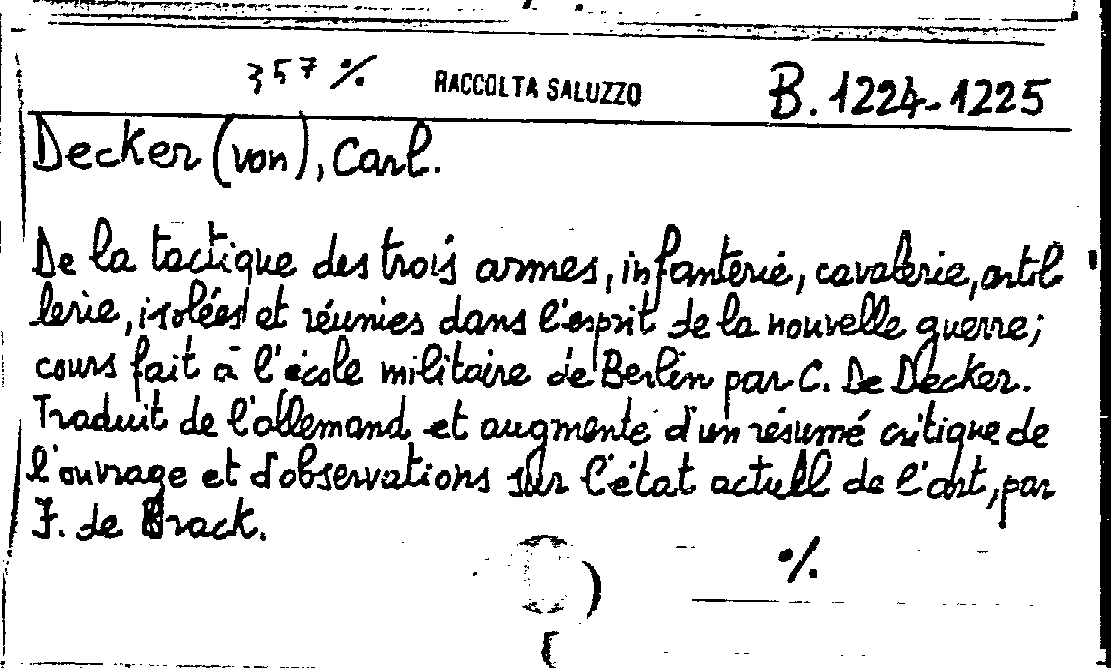 357 % RACCOLTA SALUZZO B. 1224-1225
Decker (von), Carl.
De la tactique des trois armes, infanterie, cavalerie, artil
lerie, isolées et réunies dans l'esprit de la nouvelle guerre;
cours fait à l'école militaire de Berlin par C. De Decker.
Traduit de l'allemand et augmenté d'un résumé critique de
l'ouvrage et d'observations sur l'état actuell de l'art, par
F. de Brack.
%